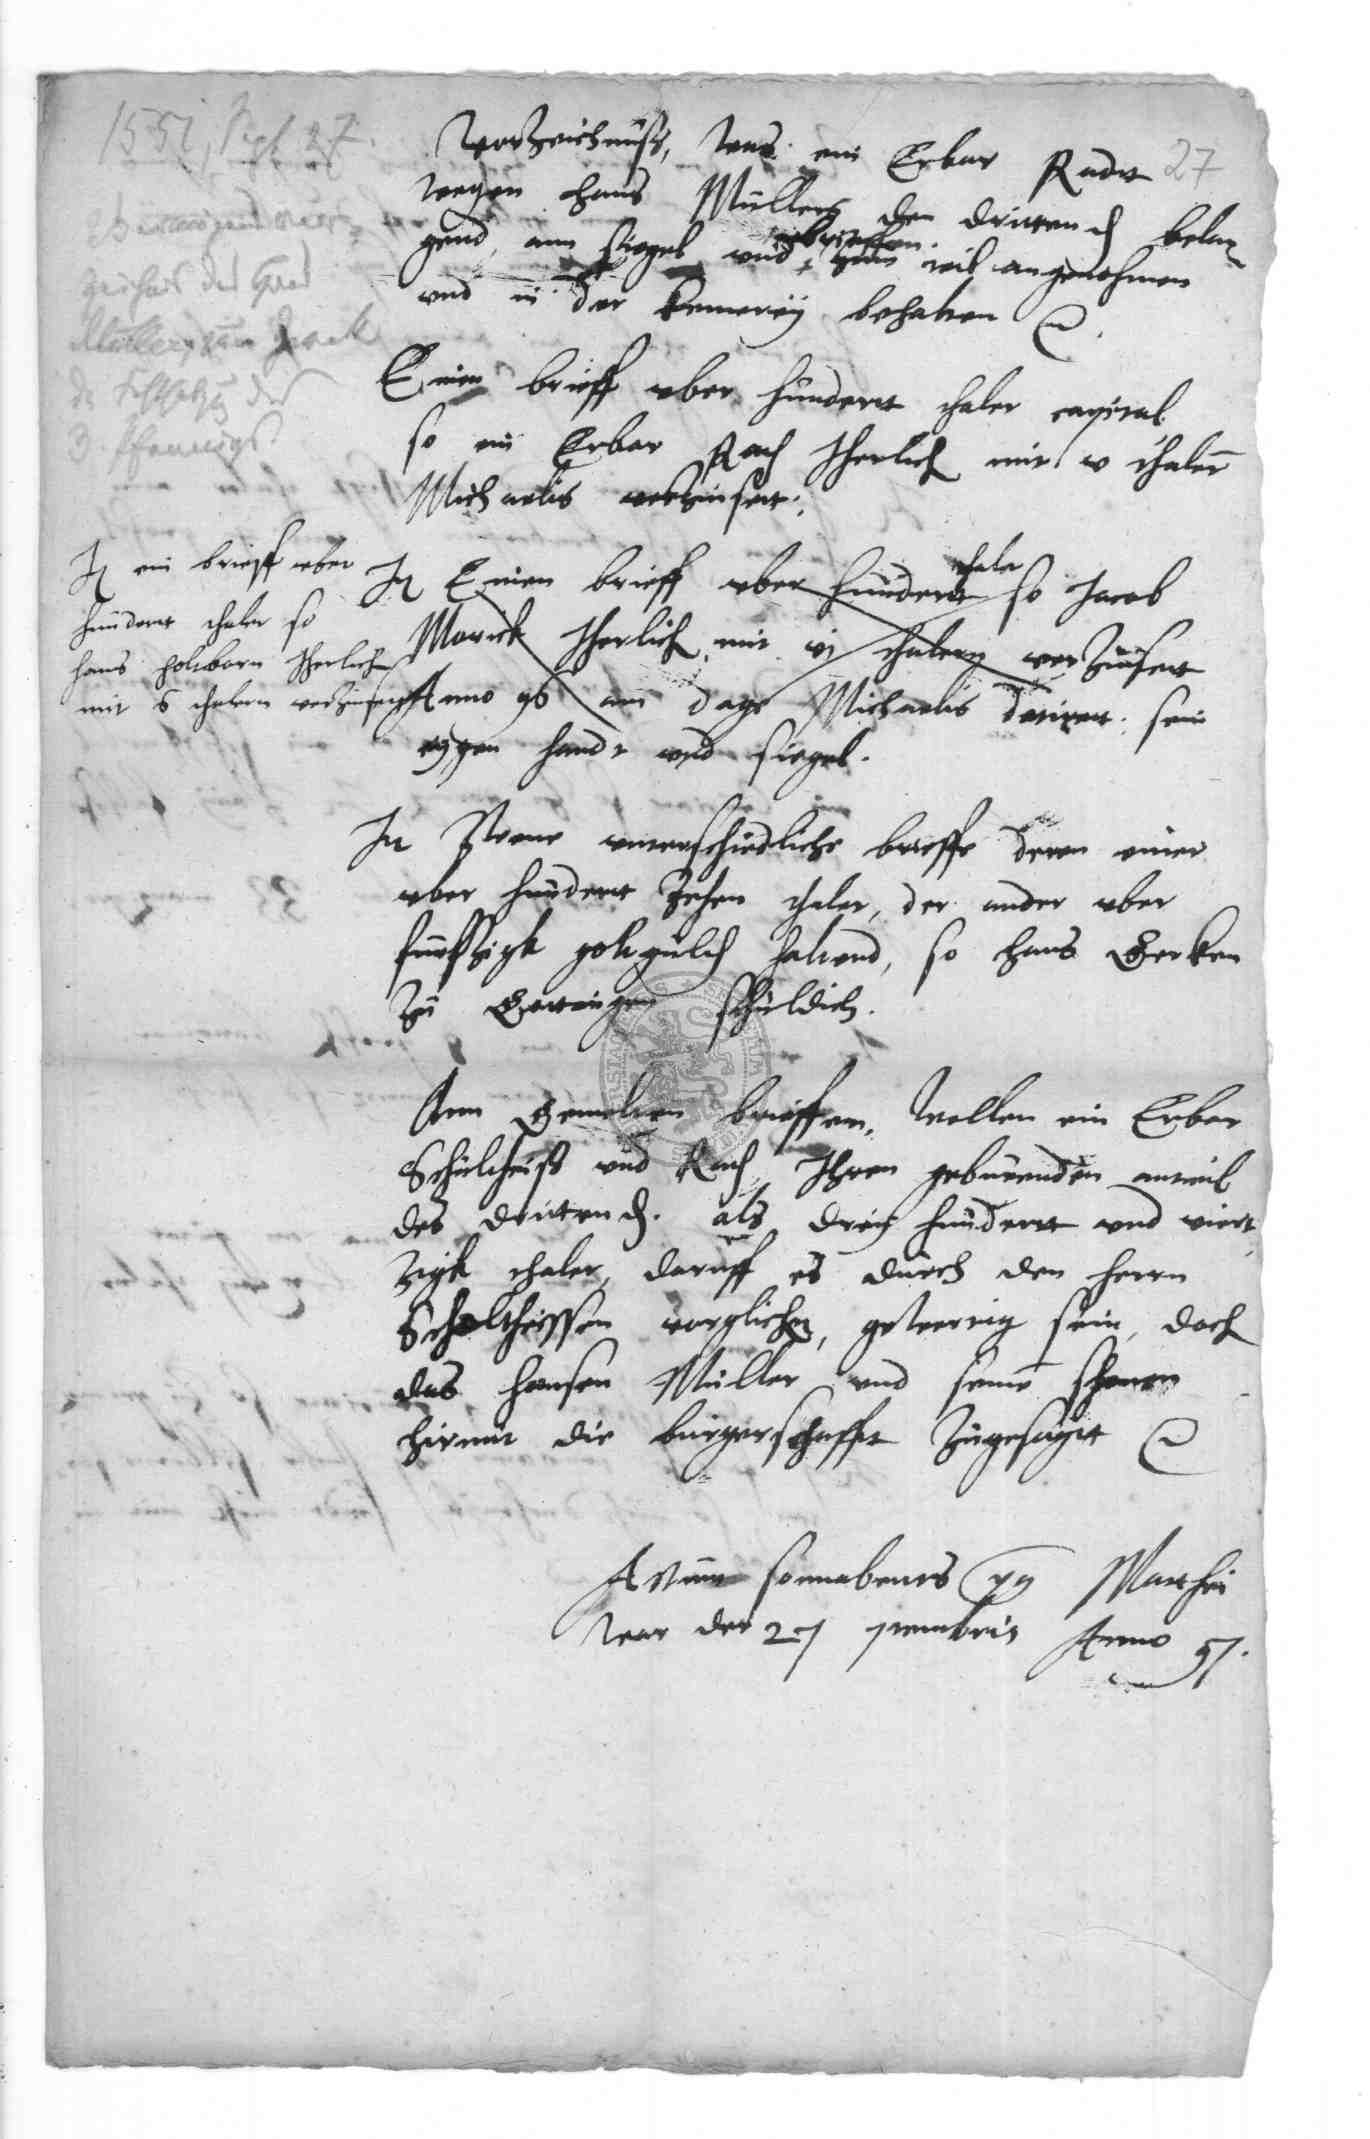 1551, Sept 27.
27
Vorzeichnüß, was ein Erbar Radt
wegen Hans Müllers den dritten ₰ belan
gend, ann siegel und brieffen zum teil angenohmen
vnd in der kemerey behalten
Einen brieff vber hundert thaler capital
so ein Erbar Rath Jherlich mit v thalern
Michaelis vorzinset.
It ein brieff vber
hundert thaler so
hans holborn Jherlich
mit 6 thalern verzinset
It Einen brieff vber hundert thaler so Jacob
Marick Jherlich mit vj thalern vorzinset
Anno 96 am dage Michaelis datirt. sein
eygen handt vnd siegel.
It Zwene vnterschiedliche brieffe deren einer
vber hundert zehen thaler, der ander vber
funffzigk goltguld haltend, so Hans Gerken
zu Gottingen schuldich.
Ann gemelten brieffen, wollen ein Erbar
Schulteiß vnd Rath Ihren geburenden anteil
des dritten ₰. als drey hundert vnd viert
zigk thaler, daruff es durch den herrn
Scholtheissen vorglichen, getwertig sein, doch
das Hansen Müller vnd seine
hirmit die burgerschafft zugesagtt
Actum sonnabents Matthei
war der 27 Anno 97.